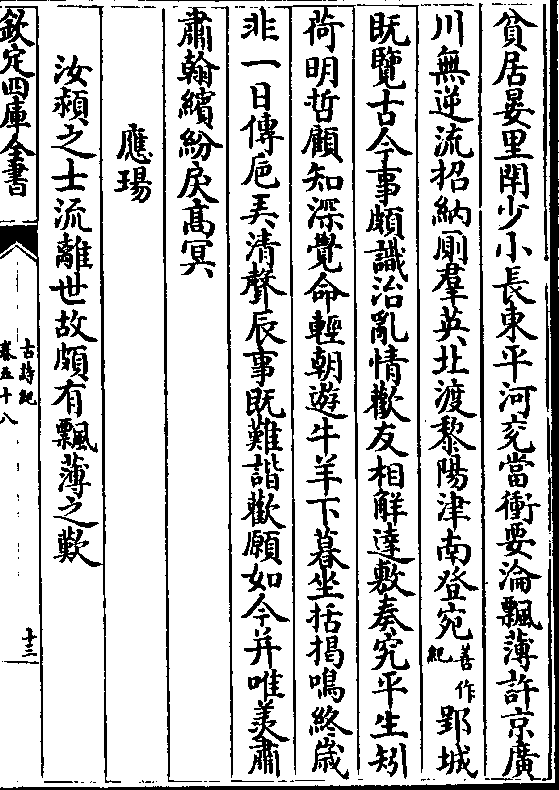 貧居晏里閈少小長東平河兖當衝要淪飄薄許京廣
川無逆流招納厠羣英北渡黎陽津南登宛善作紀郢城
既覽古今事頗識治亂情歡友相解達敷奏究平生矧
荷明哲顧知深覺命輕朝遊牛羊下暮坐括掲鳴終歲
非一日傳巵弄清聲辰事既難諧歡願如今并唯羨肅
肅翰繽紛戾髙冥
應瑒
汝潁之士流離世故頗有飄薄之歎
欽定四庫全書
古詩紀
卷五十八
十三